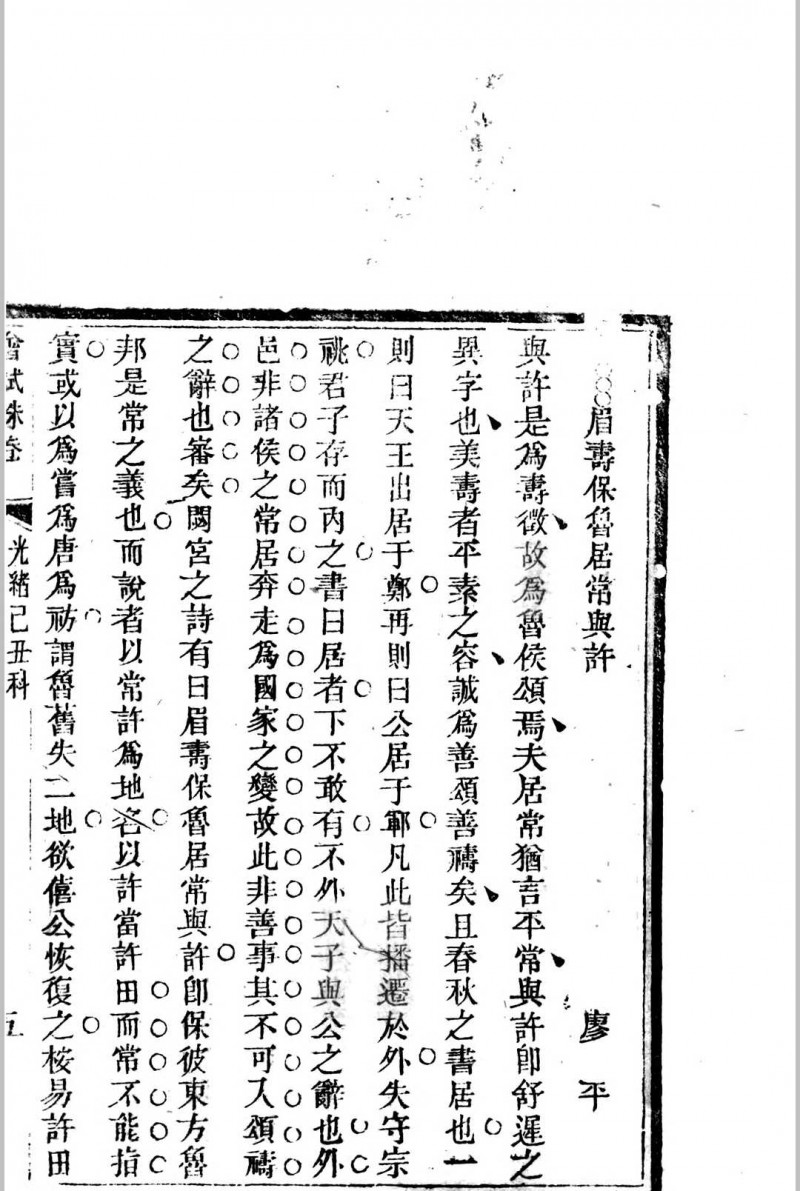 眉壽保魯居常與許　廖平
與許是爲壽徵故爲魯侯頌焉夫居常猶言平常與許卽舒遲之
異字也美壽者平素之容誠爲善頌善禱矣且春秋之書居也一
則曰天王出居于鄭再則曰公居于鄆凡此皆播遷於外失守宗
祧君子存而內之書曰居者下不敢有不外天子與公之辭也外
邑非諸侯之常居奔走爲國家之變故此非善事其不可入頌禱
之辭也審矣閟宮之詩有曰眉壽保魯居常與許卽保彼東方魯
邦是常之義也而說者以常許爲地名以許當許田而常不能指
實或以爲嘗爲唐爲祊謂魯舊失二地欲僖公恢復之桉易許田
會試硃卷　光緒己丑科　五